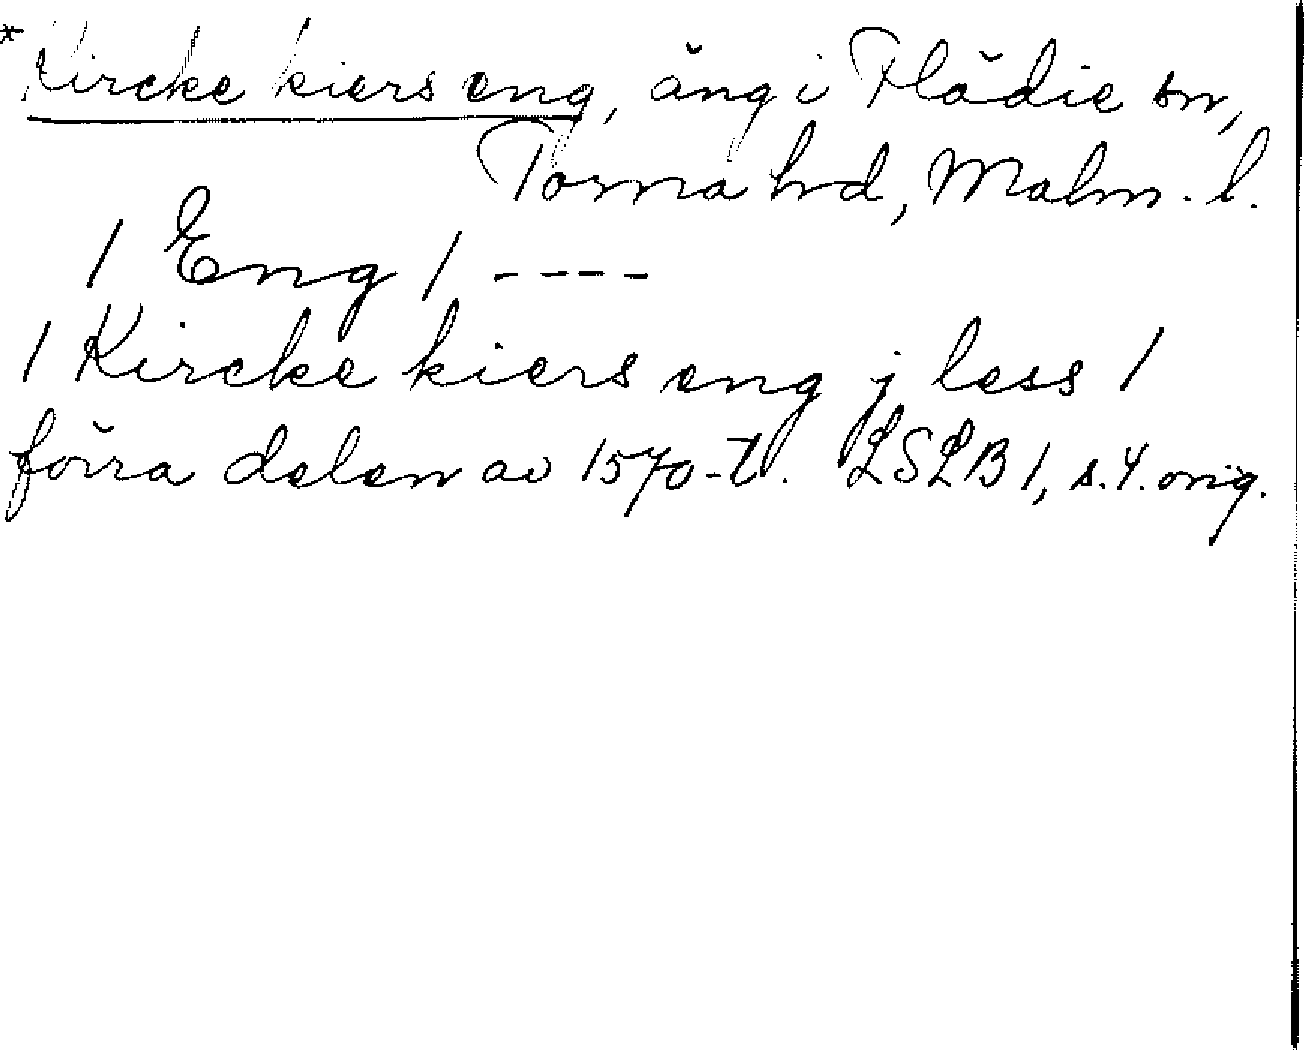 *Kircke kiers eng, äng i Flädie sn,
Torna hrd, Malm. l.
/ Eng / ----
/ Kircke kiers eng j less /
förra delen av 1570-t. LSLB 1, s. 4. orig.